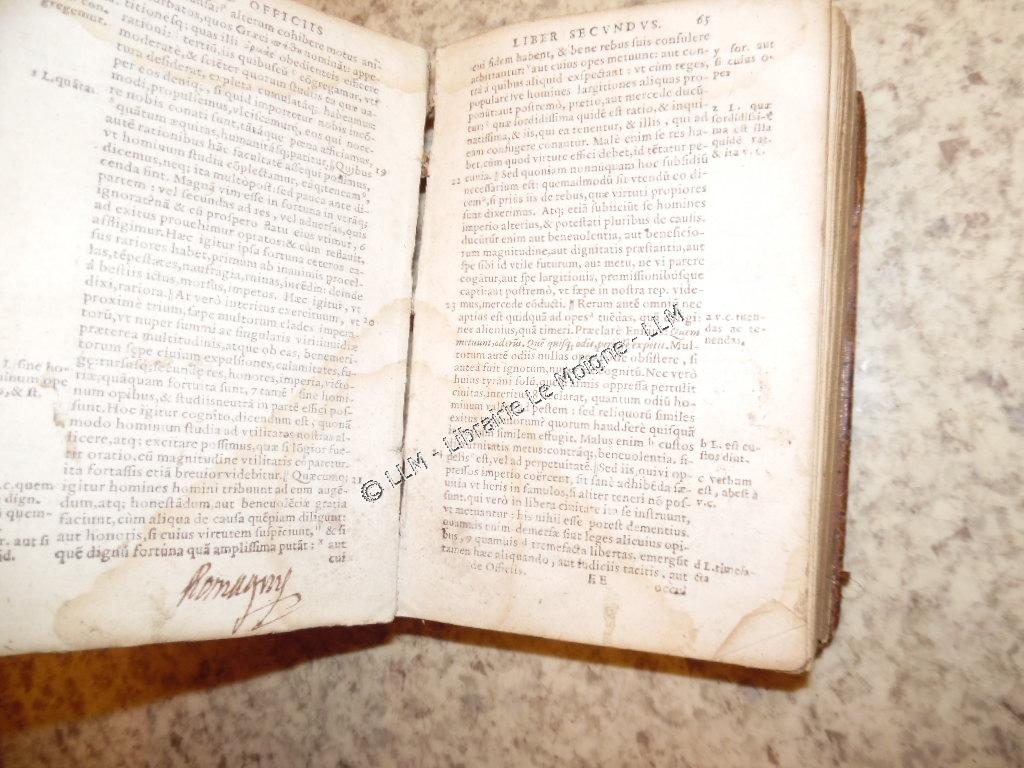 OFFICIIS
titionesq; quas illi
alterum cohibere motus ani-
tura desiderat, expleta cumulatáq; habeamus:
per eos deniq;, si quid importetur nobis incō-
modi, propulsemus, vlciscamurq; eos qui noce-
re nobis conati sunt, tātáque pœna afficiamus,
quātum æquitas, humanitásq; patitur. Quibus
autē rationibus hāc facultatē adsequi possimus,
vt hominum studia cōplectamur, eáq; teneamus,
dicemus, neq; ita multo pòst: sed pauca ante di-
cenda sint. Magnā vim esse in fortuna in vtrāq;
partem: vel secundas ad res, vel aduersas, quis
ignorat? nā & cū prospero flatu eius vtimur,
ad exitus prouehimur optatos: & cùm reflauit,
affligimur. Hæc igitur ipsa fortuna ceteros ca-
sus rariores habet, primùm ab inanimis procel-
las, tēpestates, naufragia, ruinas, incēdia: deinde
à bestiis ictus, morsus, impetus. Hæc igitur, vt
dixi, rariora. At verò interitus exercituum, vt
proximè trium, sæpe multorum clades impera-
torū, vt nuper summi ac singularis viri: inuidiæ
præterea multitudinis, atque ob eas, benemeri-
torum sæpe ciuium expulsiones, calamitates, fu-
gæ: rursúsq; secundæ res, honores, imperia, victo-
riæ, quāquam fortuita sunt, tamē sine homi-
num opibus, & studiis neutrā in partē effici pos-
sunt. Hoc igitur cognito, dicendum est, quonā
modo hominum studia ad vtilitates nostras al-
licere, atq; excitare possimus, quæ si lōgior fue-
rit oratio, cū magnitudine vtilitatis cōparetur.
ita fortassis etiā breuior videbitur. Quæcunq;
igitur homines homini tribuunt ad eum augē-
dum, atq; honestādum, aut beneuolētiæ gratia
faciunt, cùm aliqua de causa quēpiam diligunt:
aut honoris, si cuius virtutem suspiciunt, & si
quē dignū fortuna quā amplissima putāt: aut
cui
Romagny
LIBER SECVNDVS. 65
cui fidem habent, & bene rebus suis consulere
arbitrantur: aut cuius opes metuunt: aut con-
trà à quibus aliquid exspectant: vt cùm reges,
populareſve homines largitiones aliquas pro-
ponūt: aut postremò, pretio, aut mercede ducū-
tur: quæ sordidissima quidē est ratio, & inqui-
natissima, & iis, qui ea tenentur, & illis, qui ad
eam confugere conantur. Malè enim se res ha-
bet, cùm quod virtute effici debet, id tētatur pe-
cunia. Sed quoniam nonnunquam hoc subsidiū
22 necessarium est: quemadmodū sit vtendū eo di-
cem, si priùs iis de rebus, quæ virtuti propiores
sunt dixerimus. Atq; etiā subiiciūt se homines
imperio alterius, & potestati pluribus de causis.
ducūtur enim aut beneuolentia, aut beneficio-
rum magnitudine, aut dignitatis præstantia, aut
spe sibi id vtile futurum, aut metu, ne vi parere
cogātur, aut spe largitionis, promissionibúsque
capti: aut postremò, vt sæpe in nostra rep. vide-
23 mus, mercede cōducti. Rerum autē omniū nec
aptius est quidquā ad opes tuēdas, quàm diligi:
nec alienius, quā timeri. Præclarè Ennius, Quem
metuunt, oderūt. Quē quisq; odit, periisse expetit. Mul-
torum autē odiis nullas opes posse obsistere, si
antea fuit ignotum, nuper est cognitū. Nec verò
huius tyrāni solū, quem armis oppressa pertulit
ciuitas, interitus declarat, quantum odiū ho-
minum valeat ad pestem: sed reliquorū similes
exitus tyrannorum: quorum haud ferè quisquā
interitum similem effugit. Malus enim custos
diuturnitatis metus: contráq; beneuolentia, fi-
delis est, vel ad perpetuitatē. Sed iis, qui vi op-
pressos imperio coërcent, sit sanè adhibēda sæ-
uitia vt heris in famulos, si aliter teneri nō pos-
sunt. qui verò in libera ciuitate ita se instruunt,
vt metuantur: his nihil esse potest dementius.
quamuis enim demersæ sint leges alicuius opi-
bus, quamuis tremefacta libertas, emergūt
tamen hæc aliquando, aut iudiciis tacitis, aut
de Officiis. EE occul
y for. aut
si cuius o-
per
z L. quæ
sordidissi-
ma est illa
quidē rat.
& ita v.c.
a v.c. tuen-
das ac te-
nendas.
b L. est cu-
stos diut.
c verbum
est, abest à
v.c.
d L. timefa-
cta
© LLM - Librairie Le Moigne - LLM